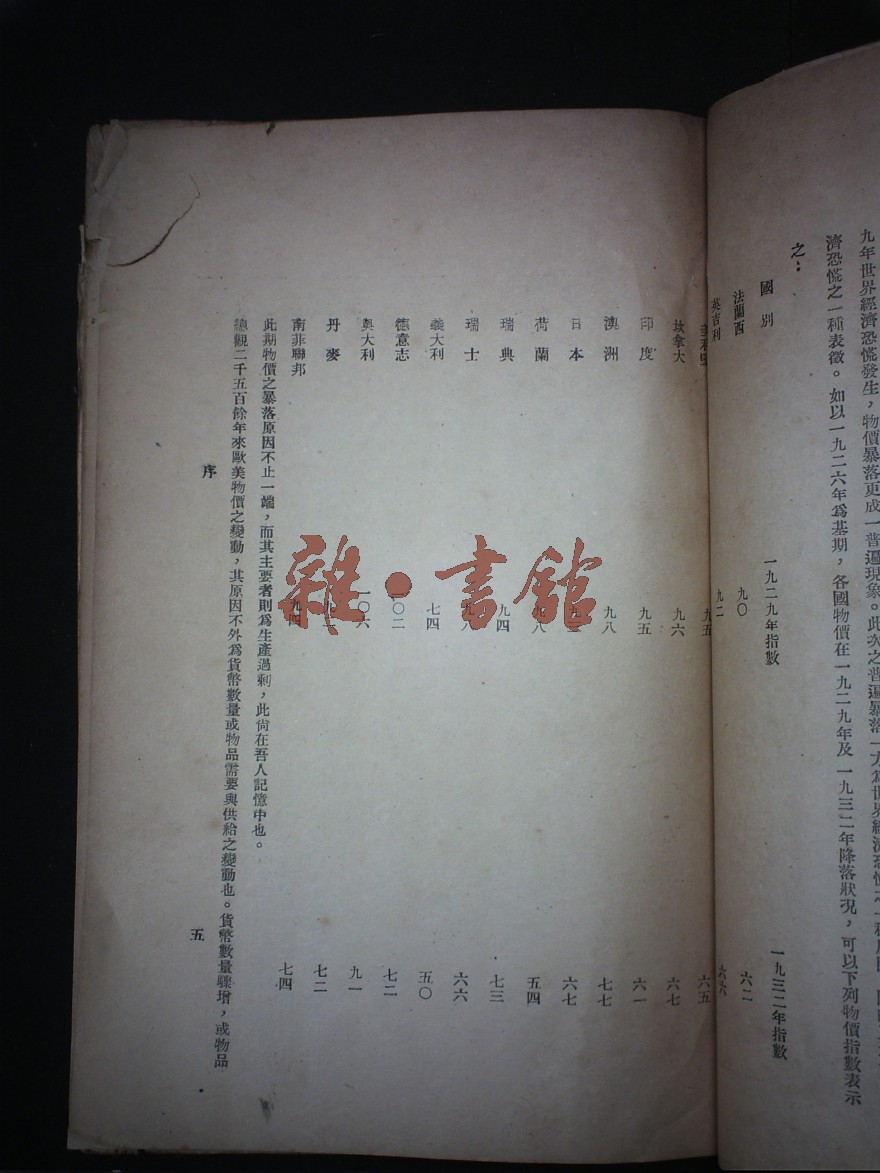 九年世界經濟恐慌發生，物價暴落更成一普遍現象。此次之普遍暴落一方爲世界經濟恐慌之一種原因
濟恐慌之一種表徵。如以一九二六年爲基期，各國物價在一九二九年及一九三二年降落狀況，可以下列物價指數表示
之：
國別 一九二九年指數 一九三二年指數
法蘭西 九〇 六二
英吉利 九二 六六
九五 六五
坎拿大 九六 六七
印度 九五 六一
澳洲 九八 七七
日本 六七
荷蘭 九八 五四
瑞典 九四 七三
瑞士 九八 六六
義大利 七四 五〇
德意志 一〇二 七二
奧大利 一〇六 九一
丹麥 七二
南菲聯邦 九四 七四
此期物價之暴落原因不止一端，而其主要者則爲生產過剩，此尙在吾人記憶中也。
總觀二千五百餘年來歐美物價之變動，其原因不外爲貨幣數量或物品需要與供給之變動也。貨幣數量驟增，或物品
序 五
雜·書館